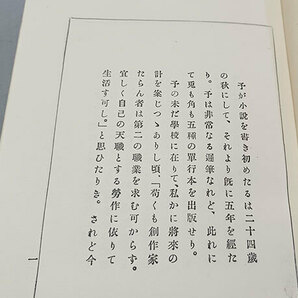 予が小説を書き初めたるは二十四歳
の秋にして、それより既に五年を經た
り。予は非常なる遲筆なれど、此れに
て兎も角も五種の單行本を出版せり。
予の未だ學校に在りて、私かに將來の
計を案じつゝありし頃、「苟くも創作家
たらん者は第二の職業を求む可からず。
宜しく自己の天職とする勞作に依りて
生活す可し。」と思ひたりき。されど今
一